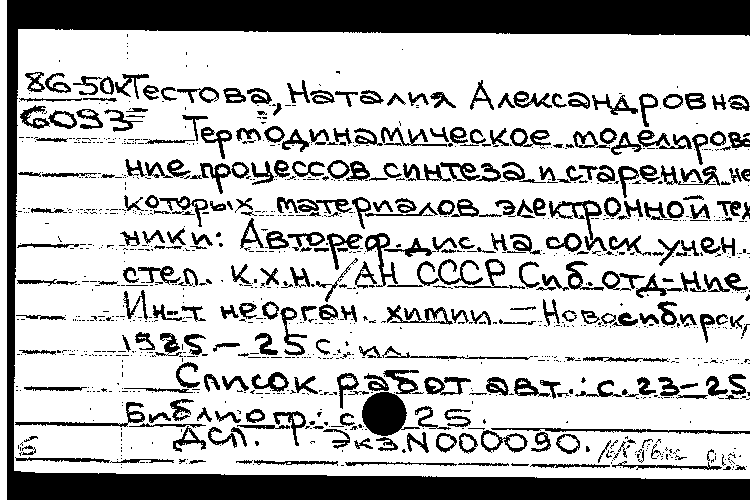 86-50к Тестова, Наталия Александровна
6093 Термодинамическое моделирова
ние процессов синтеза и старения не
которых материалов электронной тех
ники: Автореф. дис. на соиск учен.
степ. к.х.н. / АН СССР Сиб. отд-ние,
Ин-т неорган. химии. — Новосибирск,
1985. — 25 с.: ил.
Список работ авт.: с. 23-25.
Библиогр.: с. 25.
6 ДСП. Экз. N000090.